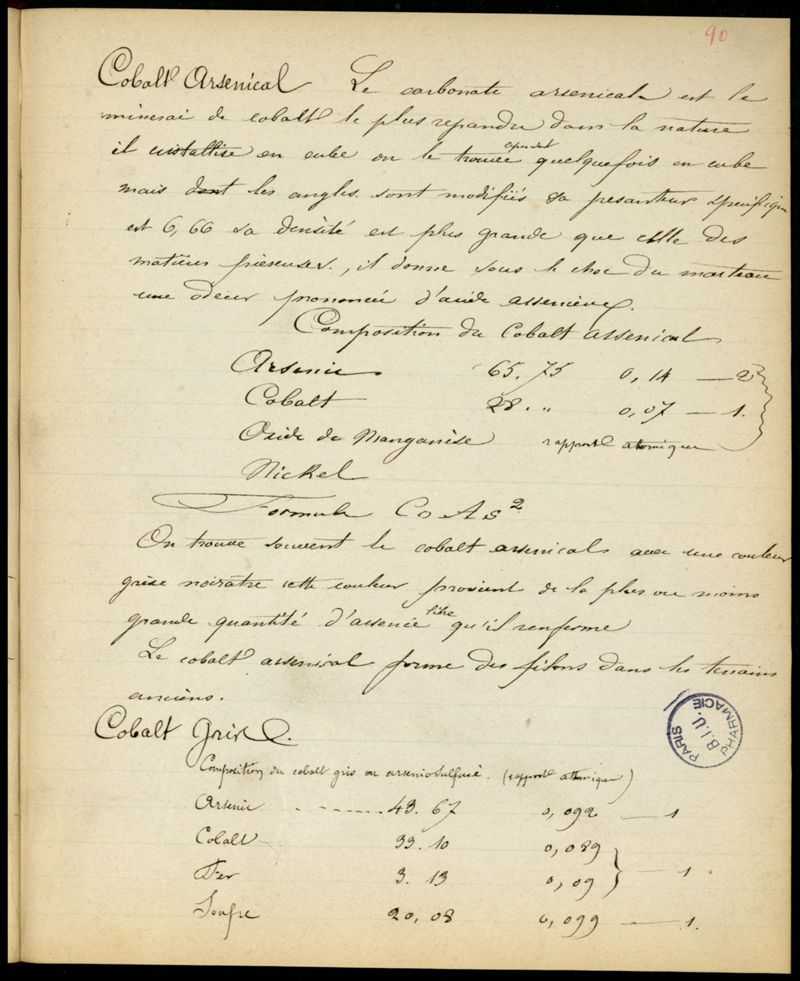 90
Cobalt Arsenical Le carbonate arsenical est le
minerai de cobalt le plus repandu dans la nature
il cristallise en cube on le trouve cependant quelquefois en cube
mais dont les angles sont modifiés sa pesanteur spécifique
est 6,66 sa densité est plus grande que celle des
matières pierreuses, il donne sous le choc du marteau
une odeur prononcée d'acide assenieux.
Composition du Cobalt assenical
Arsenic 65.75 0,14 — 2
Cobalt 28. „ 0,07 — 1.
Oxide de Manganèse rapport atomique
Nickel
Formule CoAs²
On trouve souvent le cobalt assenical avec une couleur
grise noiratre cette couleur provient de la plus ou moins
grande quantité d'assenic libre qu'il renferme
Le cobalt assenical forme des filons dans les terrains
anciens.
Cobalt Gris.
Composition du cobalt gris ou arseniosulfuré. (rapport atomique)
Arsenic - - - - - - - 43.67 0,092 — 1
Cobalt 33.10 0,089
Fer 3.13 0,09 — 1
Soufre 20,08 0,099 — 1.
B.I.U. PHARMACIE PARIS